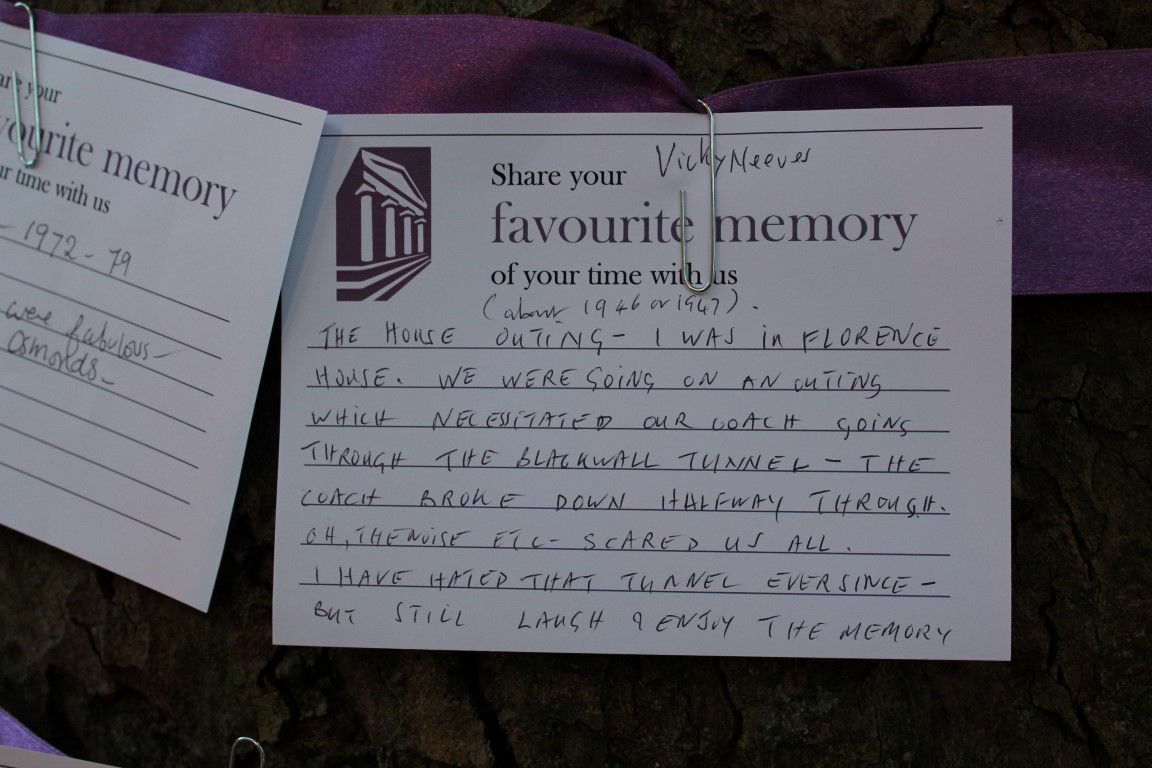 are your
vourite memory
ur time with us
- 1972 - 79
were fabulous -
Osmonds -
Share your
Vicky Neeves
favourite memory
of your time with us
(about 1946 or 1947).
THE HOUSE OUTING - I WAS in FLORENCE
HOUSE. WE WERE GOING ON AN OUTING
WHICH NECESSITATED OUR COACH GOING
THROUGH THE BLACKWALL TUNNEL - THE
COACH BROKE DOWN HALFWAY THROUGH.
OH, THE NOISE ETC - SCARED US ALL.
I HAVE HATED THAT TUNNEL EVER SINCE -
BUT STILL LAUGH & ENJOY THE MEMORY